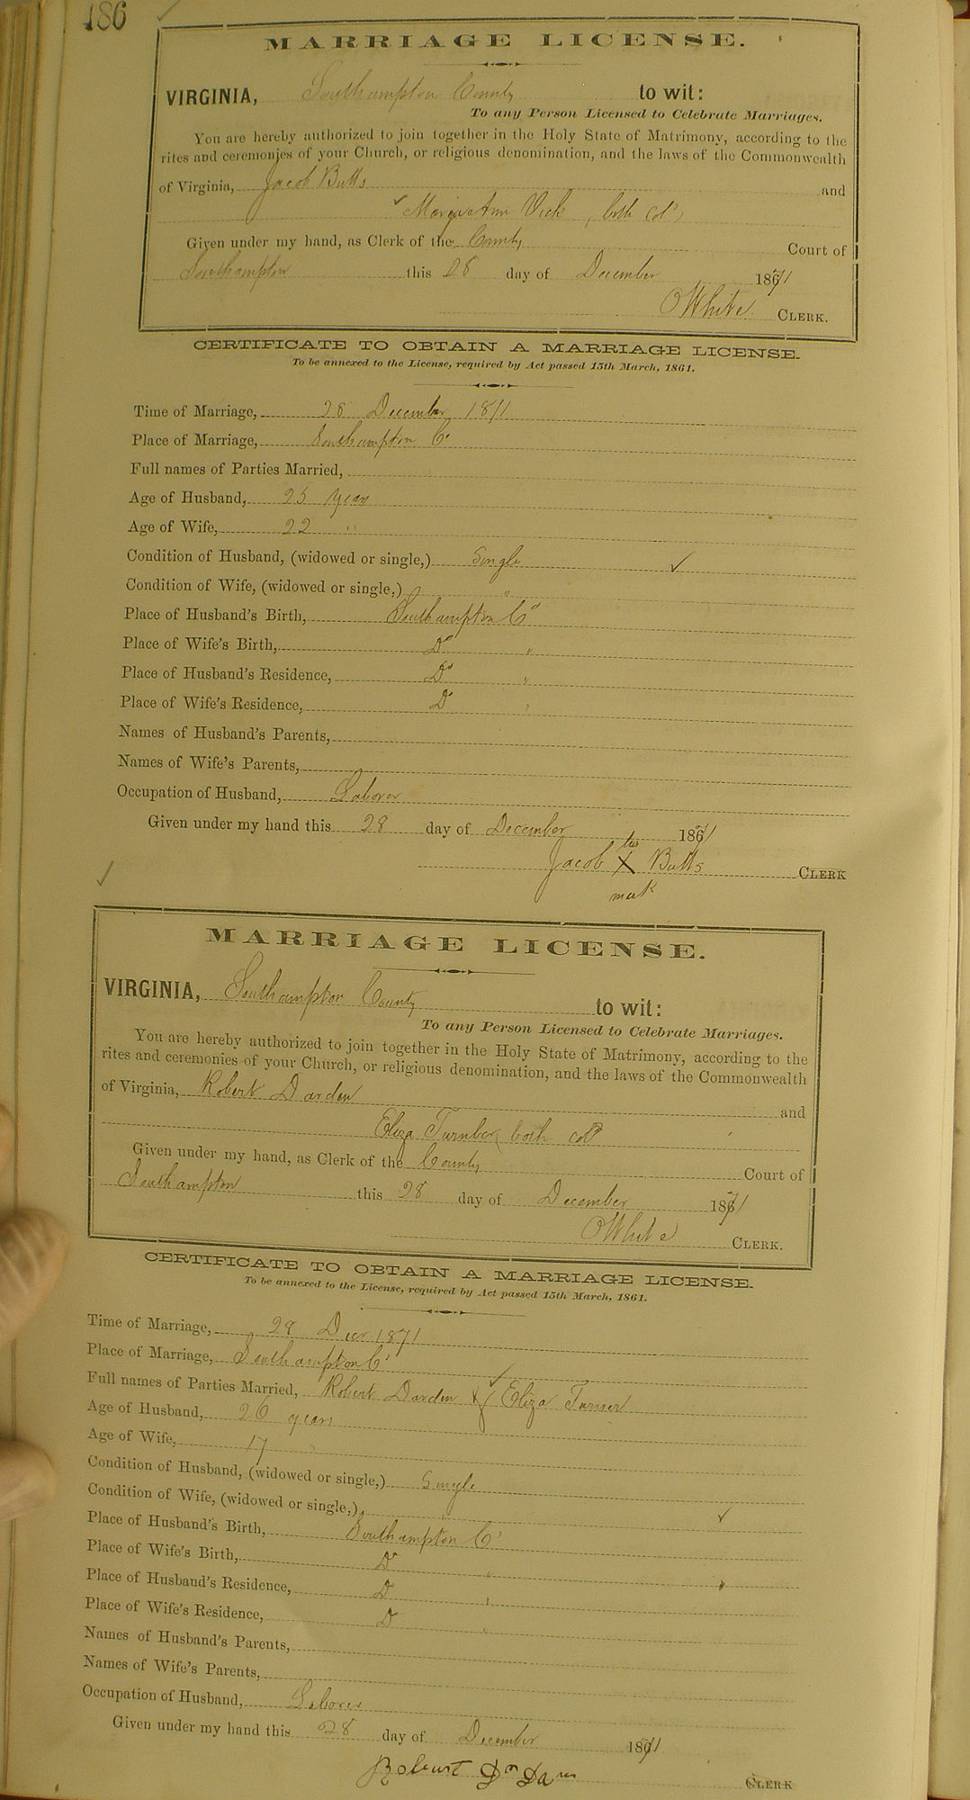 186
MARRIAGE LICENSE.
VIRGINIA, Southampton County to wit:
To any Person Licensed to Celebrate Marriages.
You are hereby authorized to join together in the Holy State of Matrimony, according to the
rites and ceremonies of your Church, or religious denomination, and the laws of the Commonwealth
of Virginia, Jacob Butts and
Vick, both Cold
Given under my hand, as Clerk of the County Court of
Southampton this 28 day of December 1871
O White CLERK.
CERTIFICATE TO OBTAIN A MARRIAGE LICENSE.
To be annexed to the License, required by Act passed 15th March, 1861.
Time of Marriage, 28 December 1871
Place of Marriage, Southampton Co
Full names of Parties Married,
Age of Husband, 25 years
Age of Wife, 22 "
Condition of Husband, (widowed or single,) Single
Condition of Wife, (widowed or single,) "
Place of Husband's Birth, Southampton Co
Place of Wife's Birth, Do "
Place of Husband's Residence, Do "
Place of Wife's Residence, Do "
Names of Husband's Parents,
Names of Wife's Parents,
Occupation of Husband, Laborer
Given under my hand this 28 day of December 1871
his
Jacob X Butts CLERK
mark
MARRIAGE LICENSE.
VIRGINIA, Southampton County to wit:
To any Person Licensed to Celebrate Marriages.
You are hereby authorized to join together in the Holy State of Matrimony, according to the
rites and ceremonies of your Church, or religious denomination, and the laws of the Commonwealth
of Virginia, Robert Darden and
Eliza Turner both cold
Given under my hand, as Clerk of the County Court of
Southampton this 28 day of December 1871
O White CLERK.
CERTIFICATE TO OBTAIN A MARRIAGE LICENSE.
To be annexed to the License, required by Act passed 15th March, 1861.
Time of Marriage, 28 Decr 1871
Place of Marriage, Southampton Co
Full names of Parties Married, Robert Darden & Eliza Turner
Age of Husband, 26 years
Age of Wife, 17 "
Condition of Husband, (widowed or single,) Single
Condition of Wife, (widowed or single,)
Place of Husband's Birth, Southampton Co
Place of Wife's Birth, Do "
Place of Husband's Residence, Do "
Place of Wife's Residence, Do "
Names of Husband's Parents,
Names of Wife's Parents,
Occupation of Husband, Laborer
Given under my hand this 28 day of December 1871
CLERK